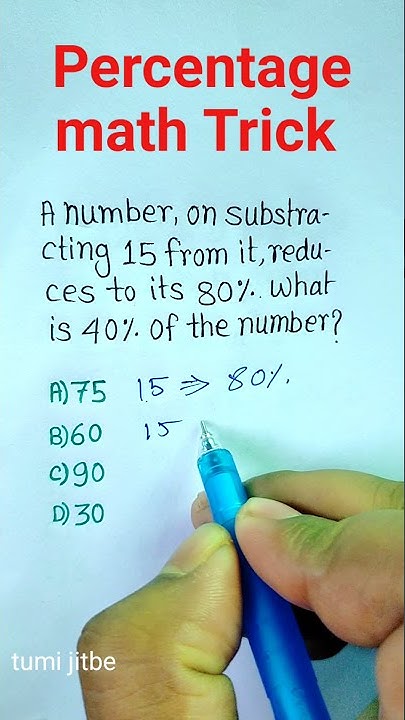 Percentage
math Trick
A number, on substra-
cting 15 from it, redu-
ces to its 80%. What
is 40% of the number?
A) 75 15 ⇒ 80%.
B) 60 15
C) 90
D) 30
tumi jitbe